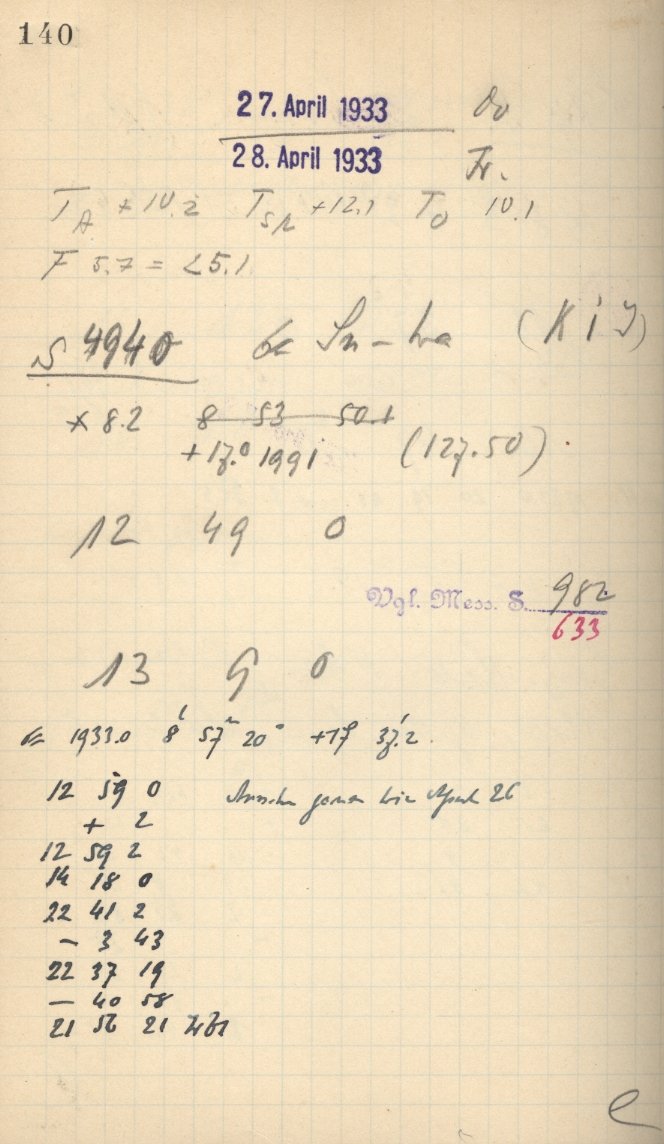 140
27. April 1933 Do
28. April 1933 Fr.
T_A + 10.2 T_Sp +12.1 T_O 10.1
F 5.7 = 25.1
S 4940 (K i J)
* 8.2 8 53 50.1
+17.° 1991 (127.50)
12 49 0
Vgl. Mess. S. 982
633
13 9 0
1933.0 8ʰ 57ᵐ 20ˢ +17° 37.′2
12 59 0 genau wie April 26
+ 2
12 59 2
14 18 0
22 41 2
– 3 43
22 37 19
– 40 58
21 56 21